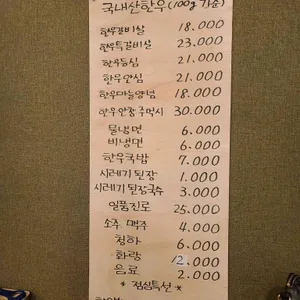 국내산한우(100g 기준)
한우갈비살 18.000
한우특갈비살 23.000
한우등심 21.000
한우안심 21.000
한우마늘양념 18.000
한우안창주먹시 30.000
물냉면 6.000
비냉면 6.000
한우국밥 7.000
시레기된장 1.000
시레기된장국수 3.000
일품진로 25.000
소주 맥주 4.000
청하 6.000
화랑 12.000
음료 2.000
* 점심특선 *